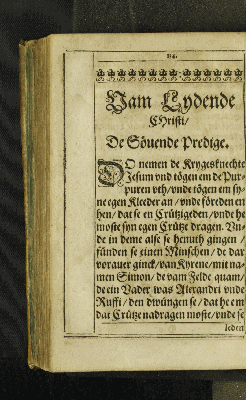 Vam Lydende
CHristi/
De Söuende Predige.
DO nemen de Krygesknechte
Jesum vnd tögen em de Pur-
puren vth/vnde tögen em sy-
ne egen Kleeder an/vnde föreden en
hen/dat se en Crützigeden/vnde he
moste syn egen Crütze dragen. Vn-
de in deme alse se henuth gingen/
fünden se einen Minschen/de dar
vorauer ginck/van Kyrene/mit na-
men Simon/de vam Felde quam/
de ein Vader was Alexandri vnde
Ruffi/den dwüngen se/dat he em
dat Crütze nadragen moste/vnde se